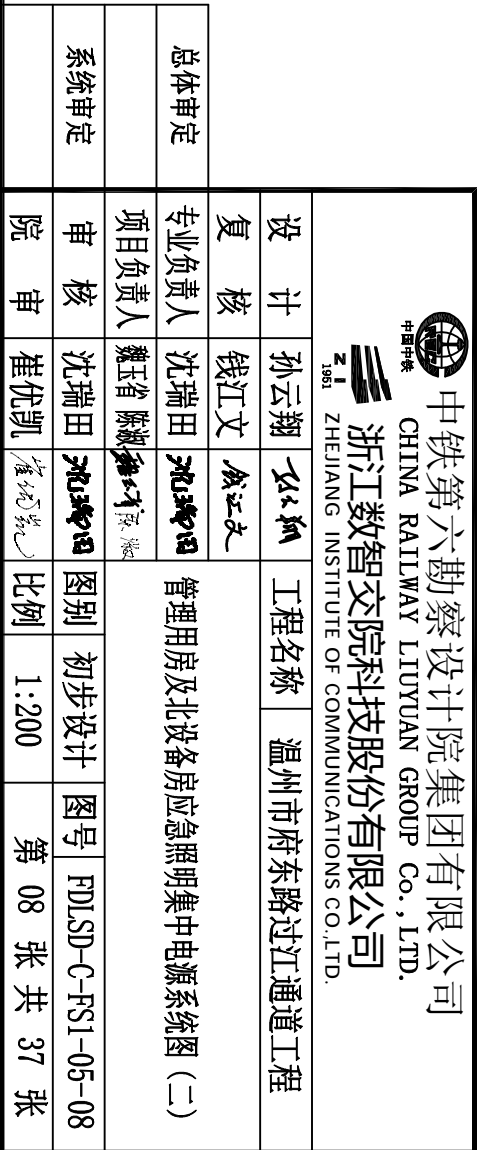 中国中铁
中铁第六勘察设计院集团有限公司
CHINA RAILWAY LIUYUAN GROUP Co.,LTD.
1951
浙江数智交院科技股份有限公司
ZHEJIANG INSTITUTE OF COMMUNICATIONS CO.,LTD.
设 计 孙云翔 孙云翔 工程名称 温州市府东路过江通道工程
复 核 钱江文 钱江文
总体审定 专业负责人 沈瑞田 沈瑞田 管理用房及北设备房应急照明集中电源系统图(二)
项目负责人 魏玉省 陈淑
系统审定 审 核 沈瑞田 沈瑞田 图别 初步设计 图号 FDLSD-C-FS1-05-08
院 审 崔优凯 崔优凯 比例 1:200 第 08 张 共 37 张